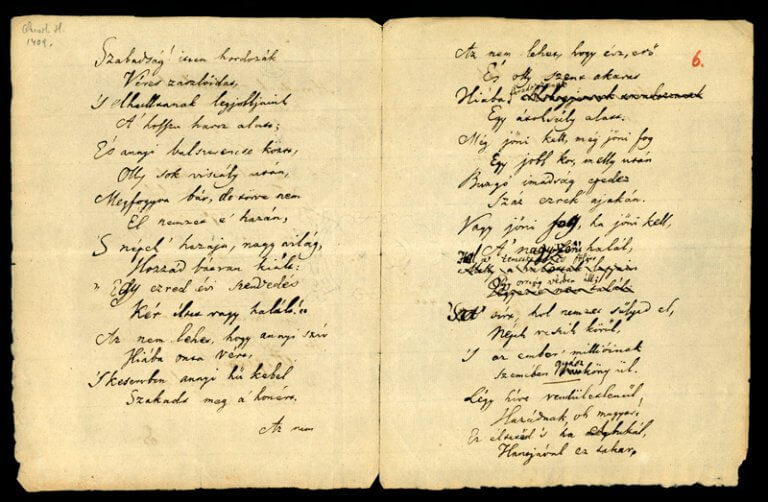 1409.
Szabadság! itten hordozák
Véres zászlóidat,
'S elhulltanak legjobbjaink
A' hosszu harcz alatt:
És annyi balszerencse közt,
Olly sok viszály után,
Megfogyva bár, de törve nem
Él nemzet e' hazán,
'S népek' hazája, nagy világ,
Hozzád bátran kiált:
"Egy ezred évi szenvedés
Kér éltet vagy halált!"
Az nem lehet, hogy annyi szív
Hiába onta vért,
'S keservben annyi hű kebel
Szakadt meg a' honért.
Az nem
6.
Az nem lehet, hogy ész, erő
És olly szent akarat
Hiába
Egy átoksúly alatt.
Még jőni kell, még jőni fog
Egy jobb kor, melly után
Buzgó imádság epedez
Száz ezrek' ajakán.
Vagy jőni fog, ha jőni kell,
A' nagyszerű halál,
'S a' sírt, hol nemzet sűlyed el,
Népek veszik körűl,
'S az ember' millióinak
Szemében gyászköny űl.
Légy híve rendűletlenűl
Hazádnak, oh magyar:
Ez éltetőd 's ha elbukál,
Hantjával ez takar.